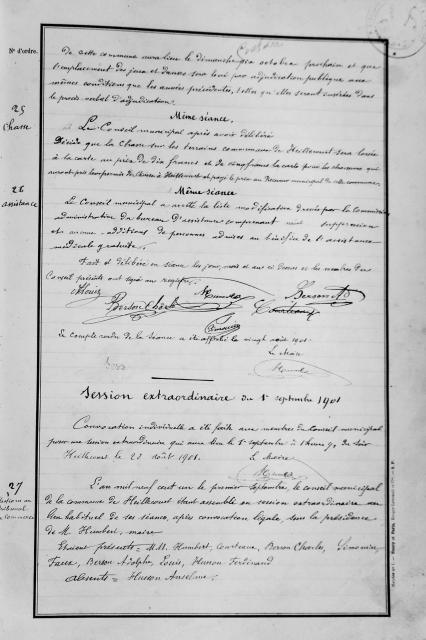 N° d'ordre.
De cette commune aura lieu le dimanche six octobre prochain et que
l'emplacement des jeux et danses sera loué par adjudication publique aux
mêmes conditions que les années précédentes, telles qu'elles seront insérées dans
le procès-verbal d'adjudication.
Même séance.
25
Chasse
Le Conseil municipal après avoir délibéré
Décide que la Chasse sur les terrains communaux de Heillecourt sera louée
à la carte au prix de dix francs et de cinq francs la carte pour les chasseurs qui
auront pris leur permis de Chasse à Heillecourt et payé le prix au Receveur municipal de cette commune.
Même séance
26
assistance
Le Conseil municipal a arrêté la liste modificative dressée par la Commission
administrative du bureau d'assistance comprenant suppression
et additions de personnes admises au bénéfice de l'assistance
médicale gratuite.
Fait et délibéré en séance les jour, mois et an ci-dessus et les membres du
Conseil présents ont signé au registre.
Louis
Berson Charles
Humbert
Courteaux
Berson Ad
Simonin
Le compte rendu de la séance a été affiché le vingt août 1901
Le Maire
Humbert
Session extraordinaire du 1er septembre 1901
Convocation individuelle a été faite aux membres du Conseil municipal
pour une session extraordinaire qui aura lieu le 1er septembre à 1 heure 1/2 du soir
Heillecourt le 23 août 1901.
Le Maire
Humbert
27
tribunal
commerce
L'an mil neuf cent un le premier septembre, le conseil municipal
de la commune de Heillecourt étant assemblé en session extraordinaire au
lieu habituel de ses séances, après convocation légale sous la présidence
de M. Humbert, maire
Etaient présents = M.M. Humbert, Courteaux, Berson Charles, Simonin,
Berson Adolphe, Louis, Husson Ferdinand
absents = Husson Anselme.